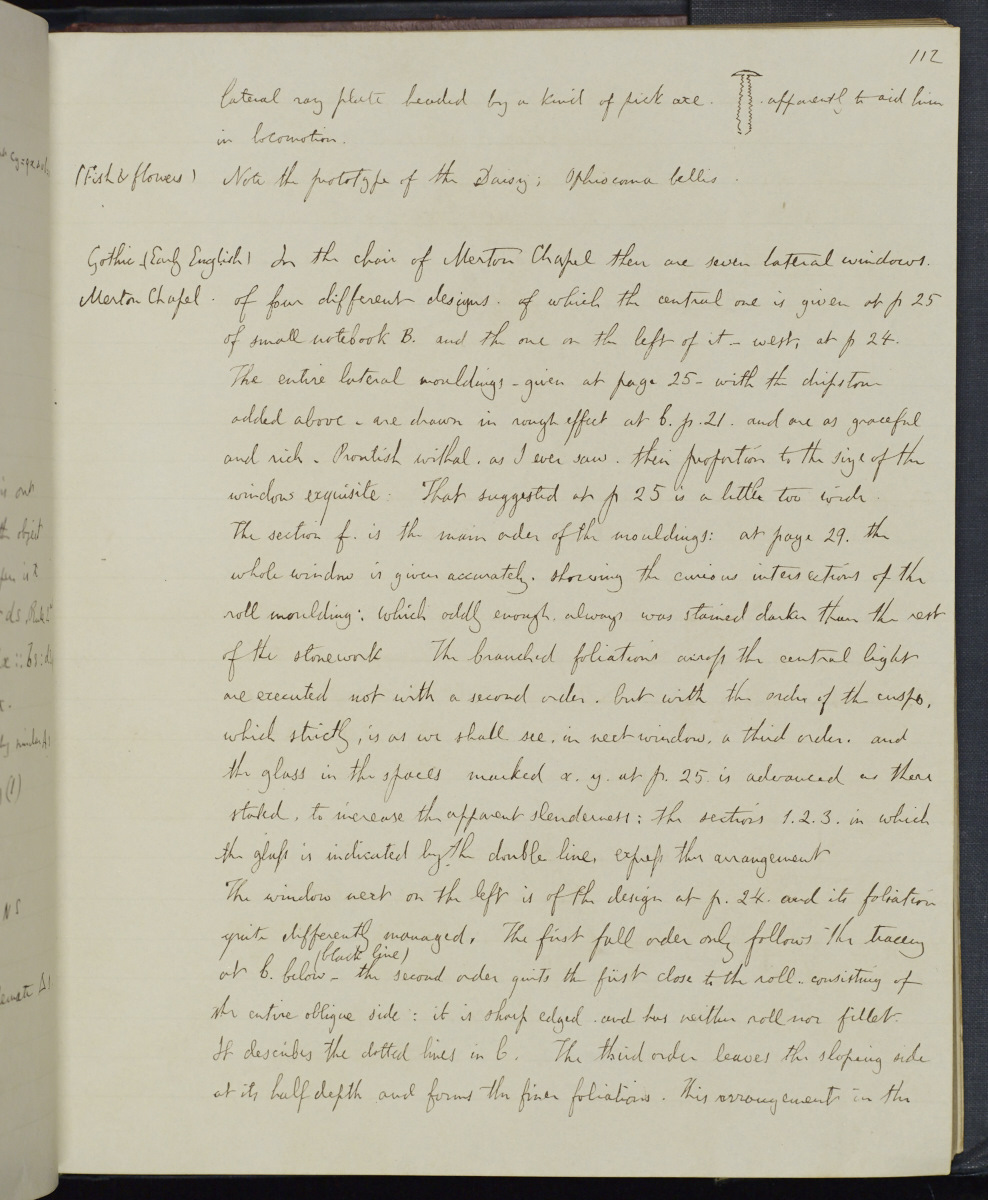 112
lateral ray plate headed by a kind of pick axe. apparently to aid him
in locomotion.
(Fish & flowers) Note the prototype of the Daisy; Ophiocoma bellis.
Gothic (Early English) In the choir of Merton Chapel there are seven lateral windows.
Merton Chapel. of four different designs. of which the central one is given at p 25
of small notebook B. and the one on the left of it - west, at p 24.
The entire lateral mouldings - given at page 25 - with the dripstone
added above - are drawn in rough effect at 6. p. 21. and are as graceful
and rich - Proutish withal, as I ever saw. their proportion to the size of the
window exquisite. That suggested at p 25 is a little too wide.
The section f. is the main order of the mouldings: at page 29. the
whole window is given accurately. showing the curious intersections of the
roll moulding: which oddly enough, always was stained darker than the rest
of the stonework The branched foliations across the central light
are executed not with a second order. but with the order of the cusps,
which strictly, is as we shall see, in next window, a third order. and
the glass in the spaces marked x. y. at p. 25. is advanced as there
stated, to increase the apparent slenderness: the sections 1. 2. 3. in which
the glass is indicated by the double lines express this arrangement
The window next on the left is of the design at p. 24. and its foliation
quite differently managed. The first full order only follows the tracery
(black line)
at 6. below - the second order quits the first close to the roll - consisting of
the entire oblique side: it is sharp edged and has neither roll nor fillet.
It describes the dotted lines in 6. The third order leaves the sloping side
at its half depth and forms the finer foliations. This arrangement in the